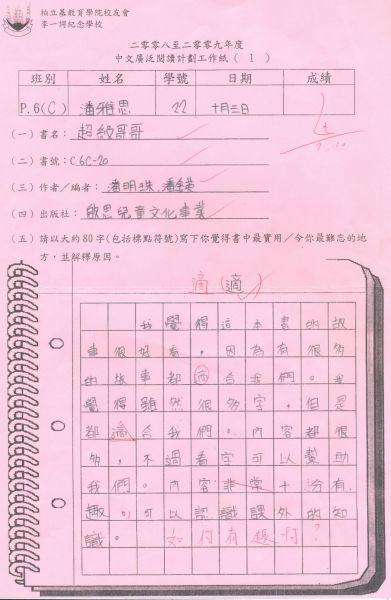 柏立基教育學院校友會
李一諤紀念學校
二零零八至二零零九年度
中文廣泛閱讀計劃工作紙（1）
班別 姓名 學號 日期 成績
P.6(C) 潘雅思 22 十月三日
(一) 書名：超級哥哥
(二) 書號：C6C-20
(三) 作者／編者：潘明珠、潘
(四) 出版社：啟思兒童文化事業
(五) 請以大約80字(包括標點符號)寫下你覺得書中最實用／令你最難忘的地
方，並解釋原因。
適（適）
我覺得這本書的故
事很好看，因為有很多
的故事都適合我們。我
覺得雖然很多字，但是
都適合我們。內容都很
多，不過看字可以幫助
我們。內容非常十分有
趣，可以認識課外的知
識。如何有趣啊？